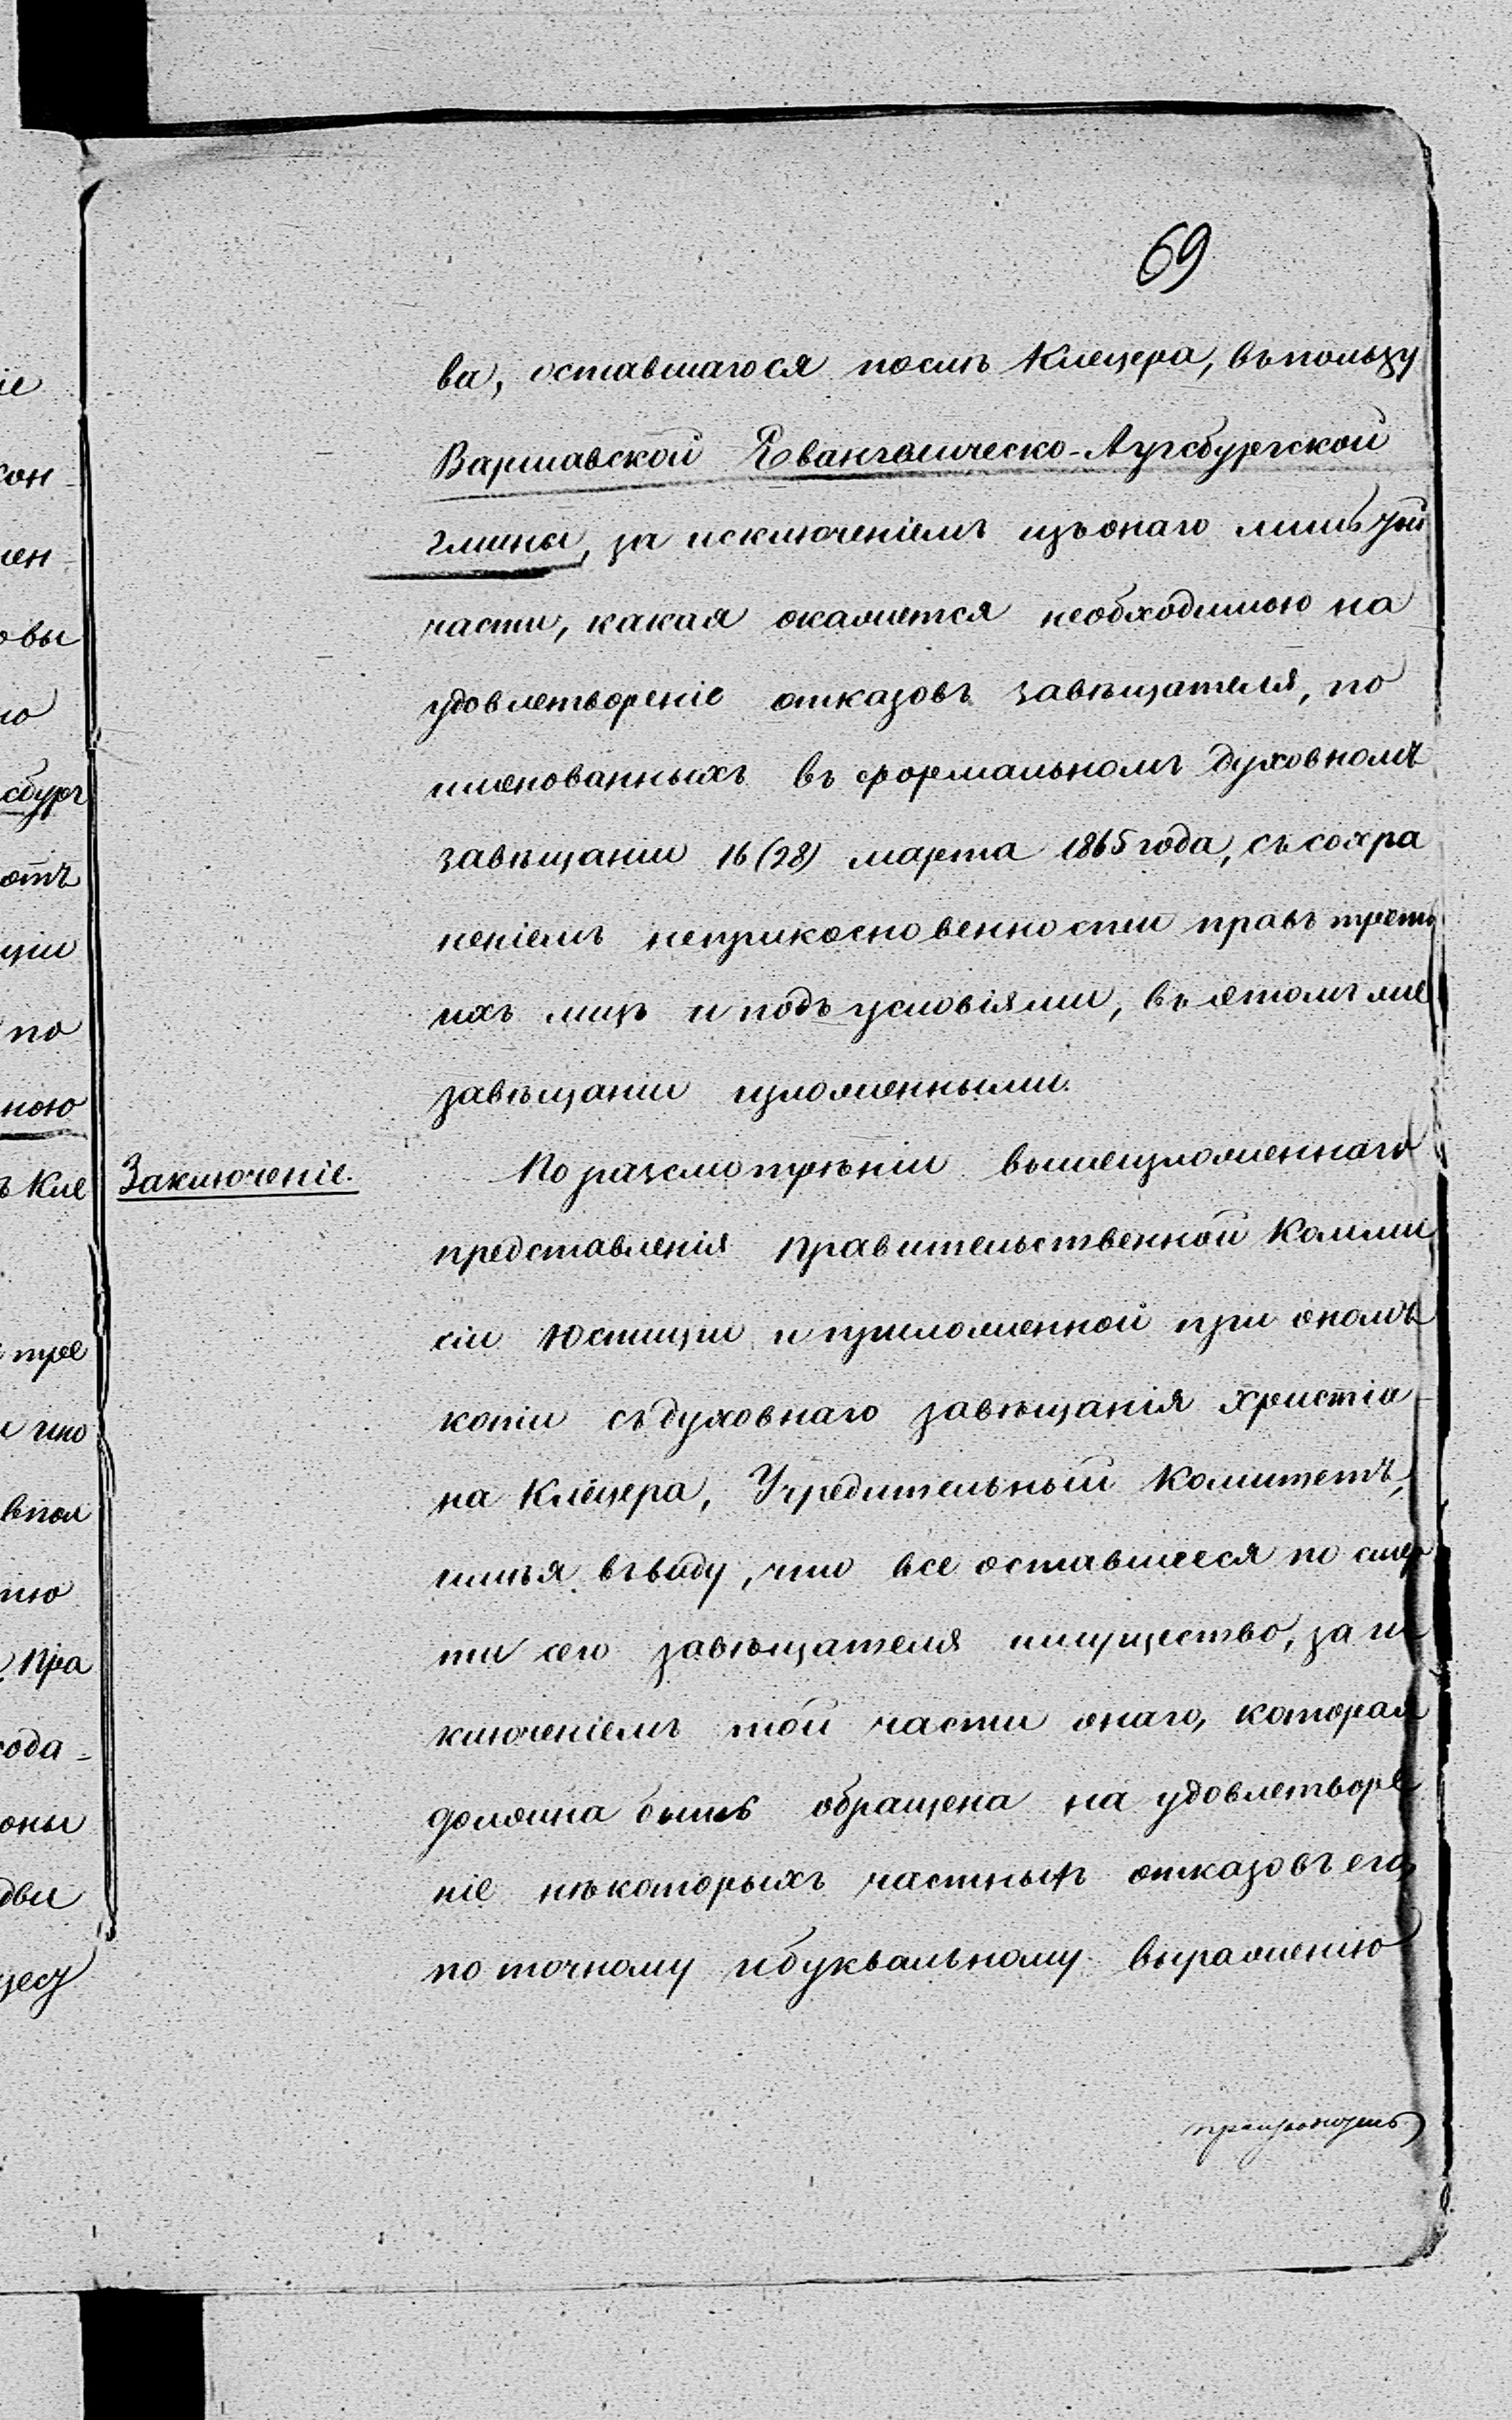 69
ва, оставшагося послѣ Клецера, въ пользу
Варшавской Евангелическо-Аугсбургской
гмины, за исключеніемъ изъ онаго лишь той
части, какая окажется необходимою на
удовлетвореніе отказовъ завѣщателя, по
именованныхъ въ формальномъ духовномъ
завѣщаніи 16 (28) марта 1865 года, съ сохра
неніемъ неприкосновенности правъ треть
ихъ лицъ и подъ условіями, въ этомъ же
завѣщаніи изложенными.
Заключеніе. По разсмотрѣніи вышеизложеннаго
представленія Правительственной Комми
сіи Юстиціи и приложенной при ономъ
копіи съ духовнаго завѣщанія Христіа-
на Клецера, Учредительный Комитетъ,
имѣя въ виду, что все оставшееся по смер
ти сего завѣщателя имущество, за ис
ключеніемъ той части онаго, которая
должна быть обращена на удовлетворе
ніе нѣкоторыхъ частныхъ отказовъ его,
по точному и буквальному выраженію
іе
кон-
мен-
овы
но
сбург
отъ
ціи
по
ною
ъ Кле
тре
и гно
впол
тію
Пра
года-
оны
дви
цесу